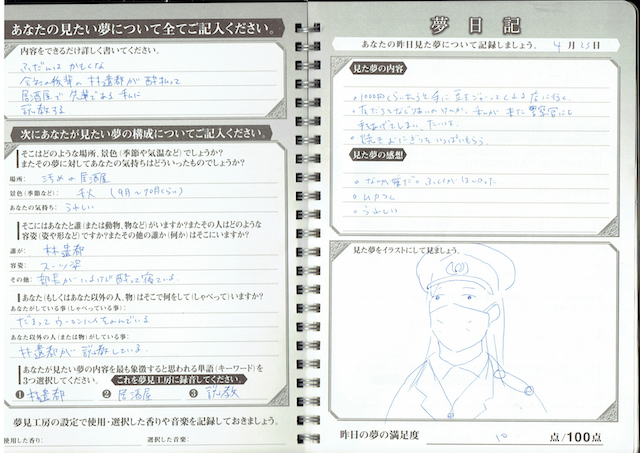 あなたの見たい夢について全てご記入ください。
内容をできるだけ詳しく書いてください。
ふだんは かもくな
会社の後輩の 林遣都が 酔払って
居酒屋で 先輩である 私に
説教する
次にあなたが見たい夢の構成についてご記入ください。
そこはどのような場所、景色(季節や気温など)でしょうか?
またその夢に対してあなたの気持ちはどういったものでしょうか?
場所: 汚めの居酒屋
景色(季節など): 秋 (9月〜10月くらい)
あなたの気持ち: うれしい
そこにはあなたと誰(または動物、物など)がいますか?またその人はどのような
容姿(姿や形など)ですか?またその他の誰か(何か)はそこにいますか?
誰が: 林遣都
容姿: スーツ姿
その他: 部長がいるけど酔って寝ている
あなた(もしくはあなた以外の人、物)はそこで何をして(しゃべって)いますか?
あなたがしている事(しゃべっている事):
だまってウーロンハイをのんでいる
あなた以外の人(または物)がしている事:
林遣都が 説教している
あなたが見たい夢の内容を最も象徴すると思われる単語(キーワード)を
3つ選択してください。 これを夢見工房に録音してください
❶ 林遣都 ❷ 居酒屋 ❸ 説教
夢見工房の設定で使用・選択した香りや音楽を記録しておきましょう。
使用した香り: 選択した音楽:
夢日記
あなたの昨日見た夢について記録しましょう。 4月23日
見た夢の内容
見た夢の感想
・ムカつく
・うれしい
見た夢をイラストにして見ましょう。
昨日の夢の満足度 10 点/100点